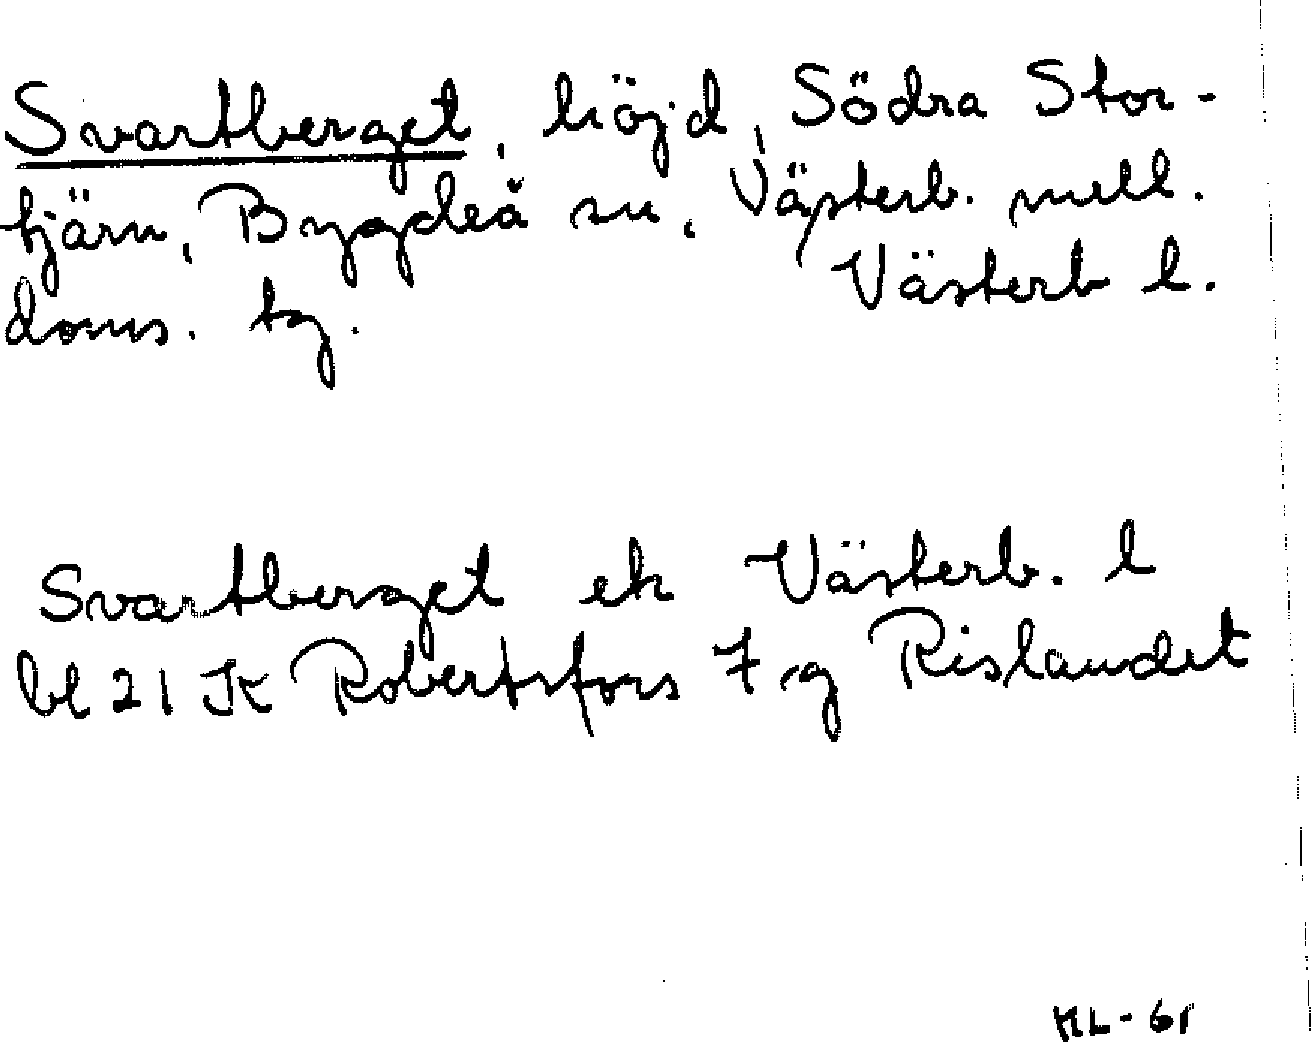 Svartberget, höjd, Södra Stor-
tjärn, Bygdeå sn, Västerb. mell.
doms. tg. Västerb l.
Svartberget ek Västerb. l
bl 21 K Robertsfors 7 g Rislandet
ML-61